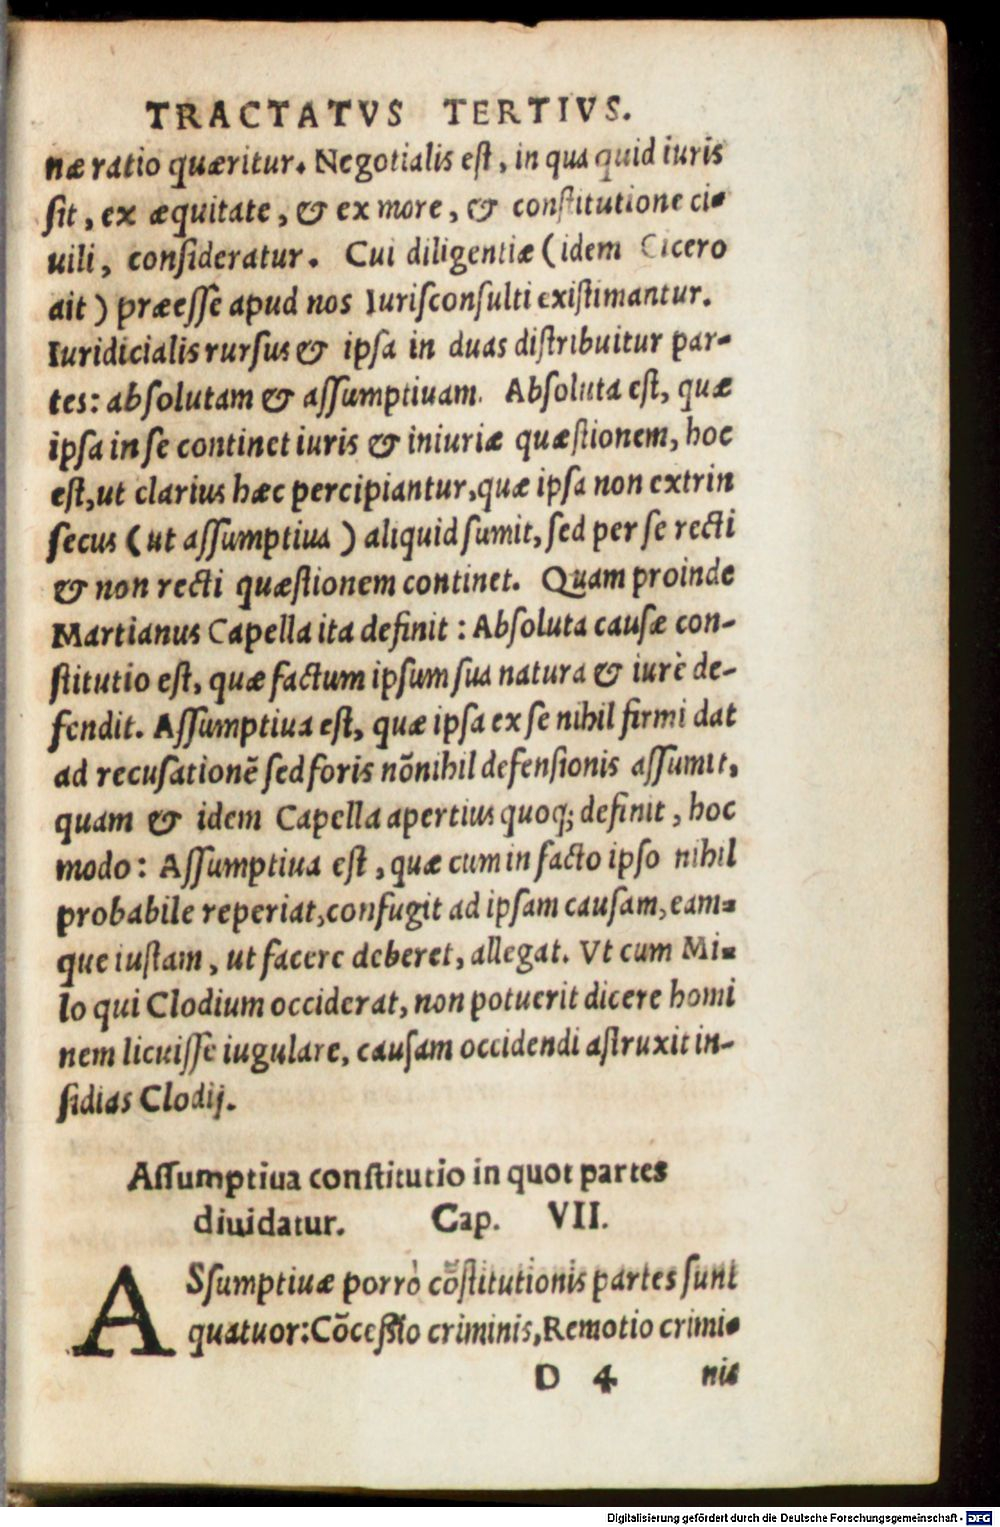 TRACTATVS TERTIVS.
næ ratio quæritur. Negotialis est, in qua quid iuris
sit, ex æquitate, & ex more, & constitutione ci-
uili, consideratur. Cui diligentiæ (idem Cicero
ait) præesse apud nos Iurisconsulti existimantur.
Iuridicialis rursus & ipsa in duas distribuitur par-
tes: absolutam & assumptiuam. Absoluta est, quæ
ipsa in se continet iuris & iniuriæ quæstionem, hoc
est, ut clarius hæc percipiantur, quæ ipsa non extrin
secus (ut assumptiua) aliquid sumit, sed per se recti
& non recti quæstionem continet. Quam proinde
Martianus Capella ita definit: Absoluta causæ con-
stitutio est, quæ factum ipsum sua natura & iurè de-
fendit. Assumptiua est, quæ ipsa ex se nihil firmi dat
ad recusationẽ sed foris nõnihil defensionis assumit,
quam & idem Capella apertius quoq; definit, hoc
modo: Assumptiua est, quæ cum in facto ipso nihil
probabile reperiat, confugit ad ipsam causam, eam-
que iustam, ut facere deberet, allegat. Vt cum Mi-
lo qui Clodium occiderat, non potuerit dicere homi
nem licuisse iugulare, causam occidendi astruxit in-
sidias Clodij.
Assumptiua constitutio in quot partes
diuidatur. Cap. VII.
ASsumptiuæ porrò cõstitutionis partes sunt
quatuor: Cõcessio criminis, Remotio crimi-
D 4 nis
Digitalisierung gefördert durch die Deutsche Forschungsgemeinschaft - DFG